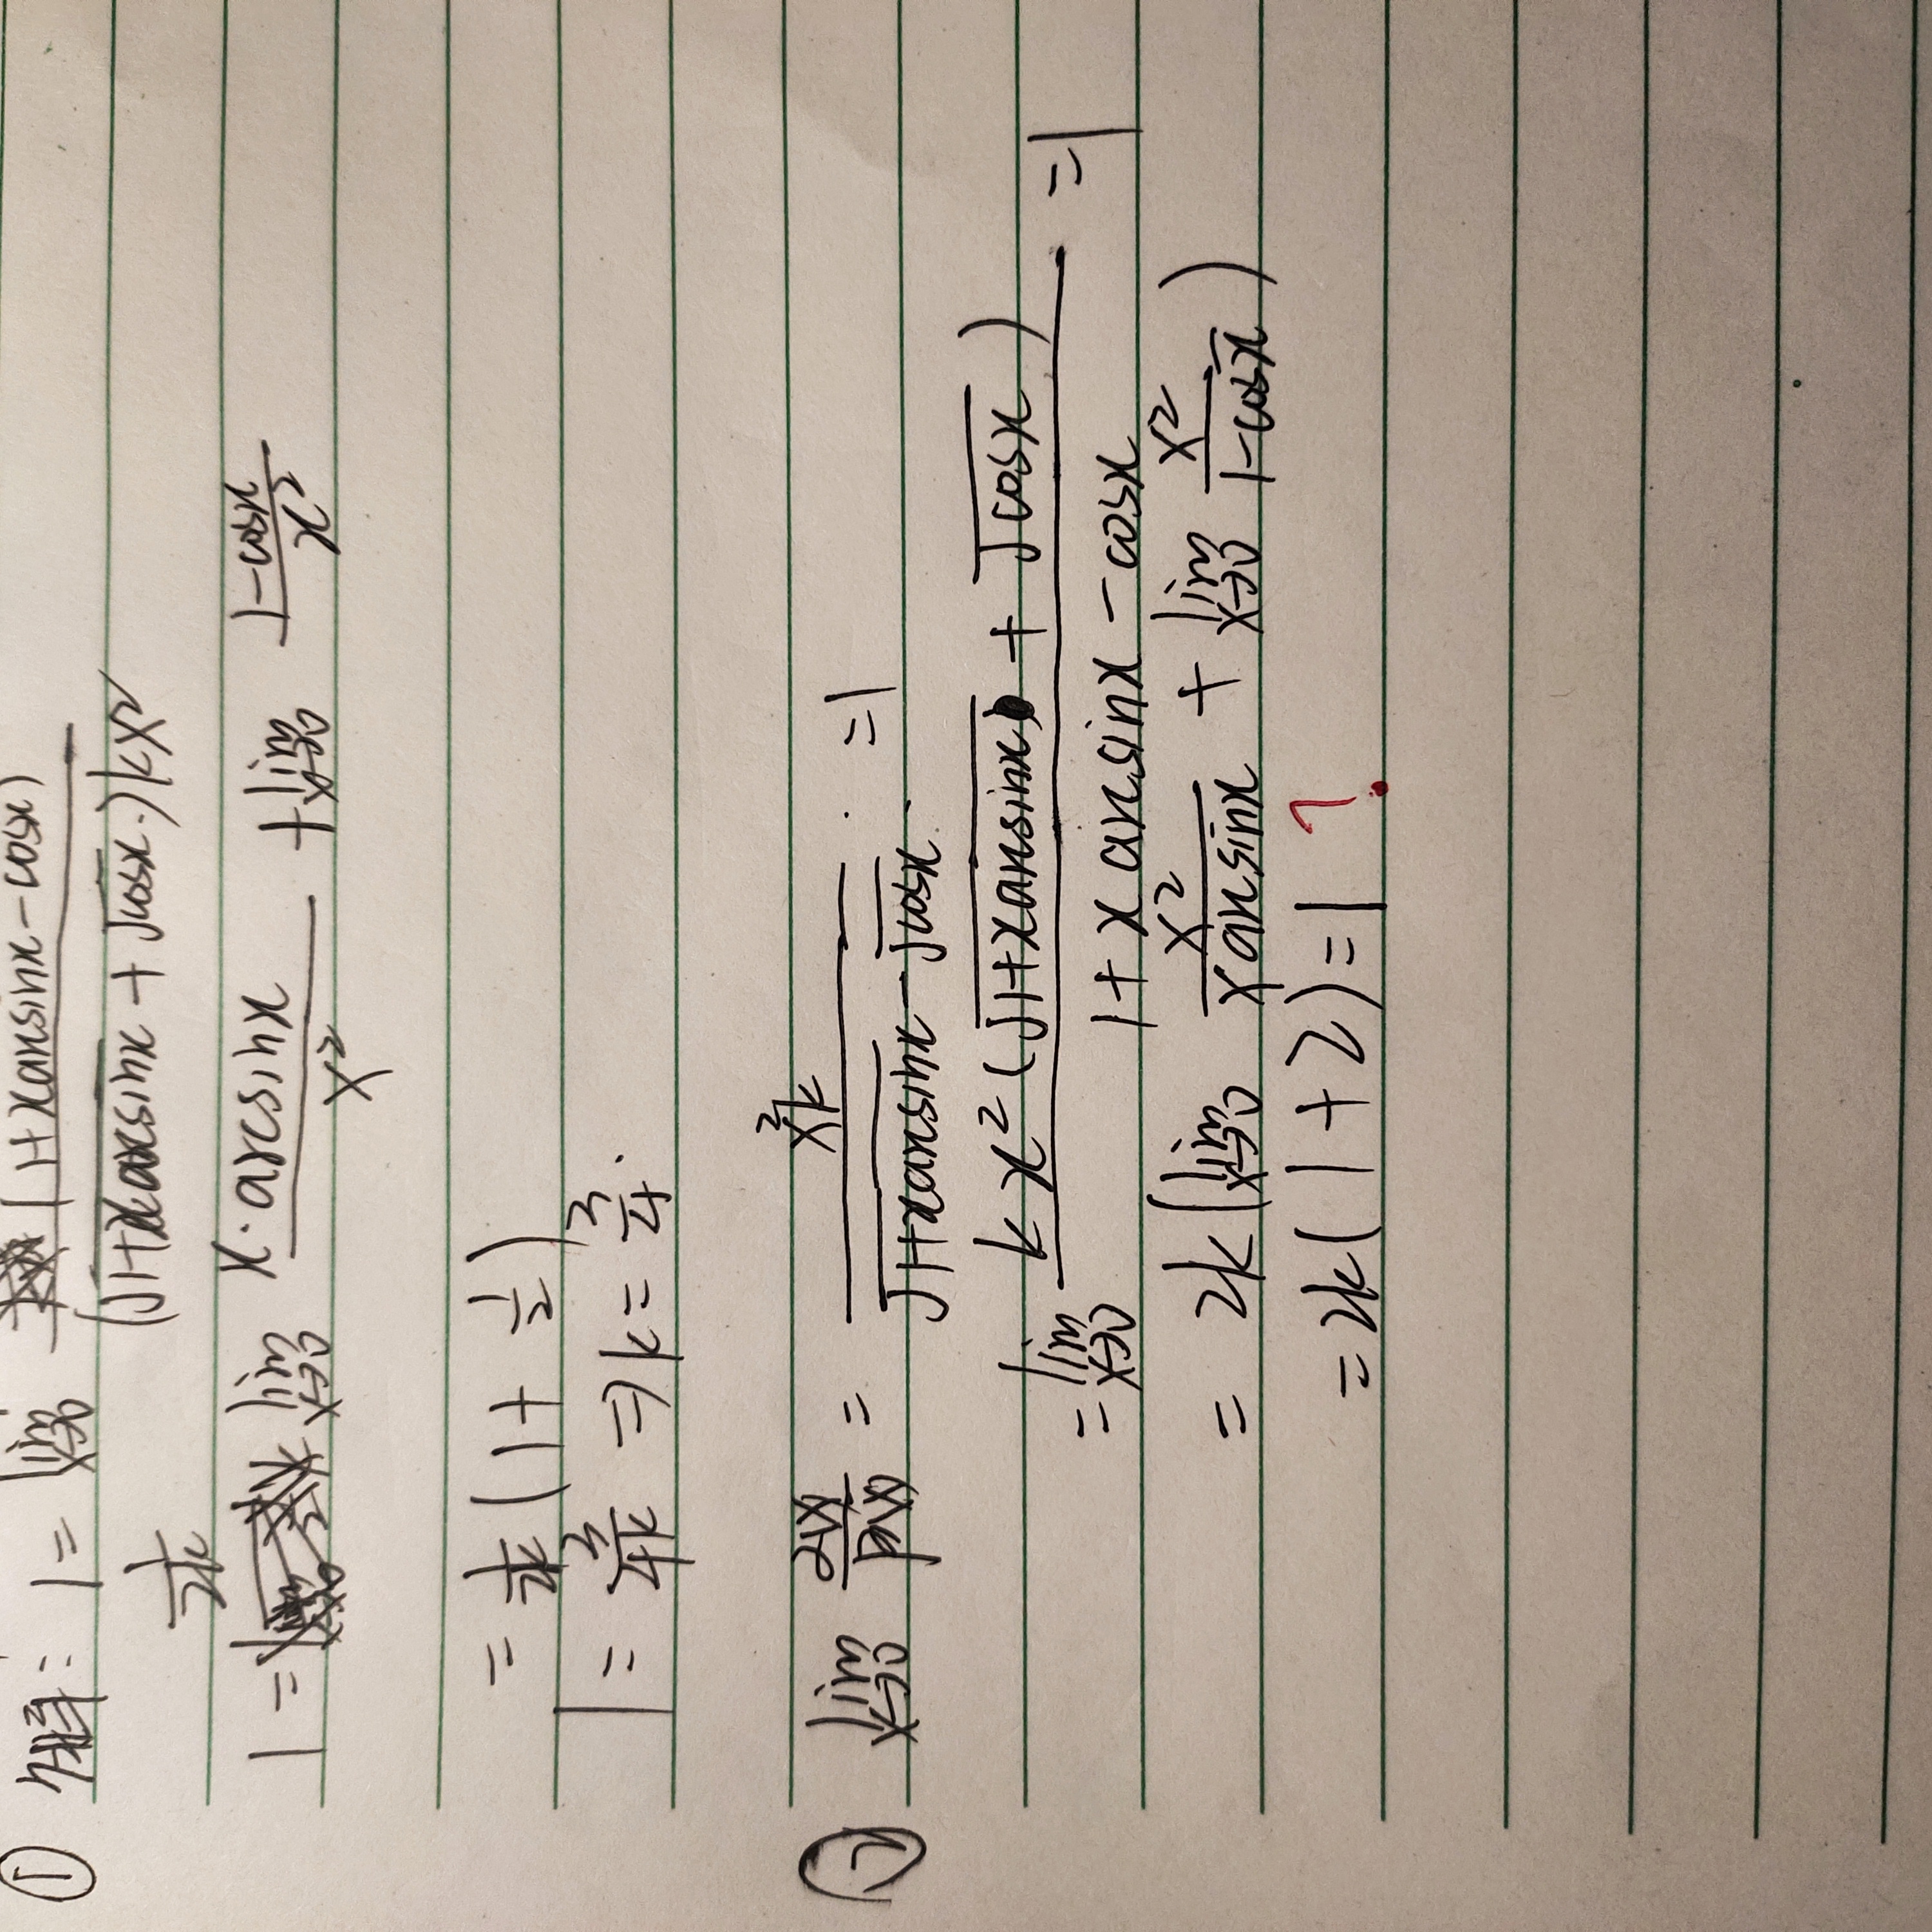 ① 解: 1 = lim x→0 (1+xarcsinx-cosx) / (√1+xarcsinx + √cosx)kx²
1 = 1/2k lim x→0 x·arcsinx / x² + lim x→0 1-cosx / x²
= 1/2k (1 + 1/2)
1 = 3/4k ⇒ k = 3/4.
② lim x→0 α(x)/β(x) = x²k / √1+xarcsinx - √cosx = 1
= lim x→0 kx² (√1+xarcsinx + √cosx) / 1+xarcsinx-cosx = 1
= 2k (lim x→0 x²/xarcsinx + lim x→0 x²/1-cosx)
= 2k(1+2) = 1 ?